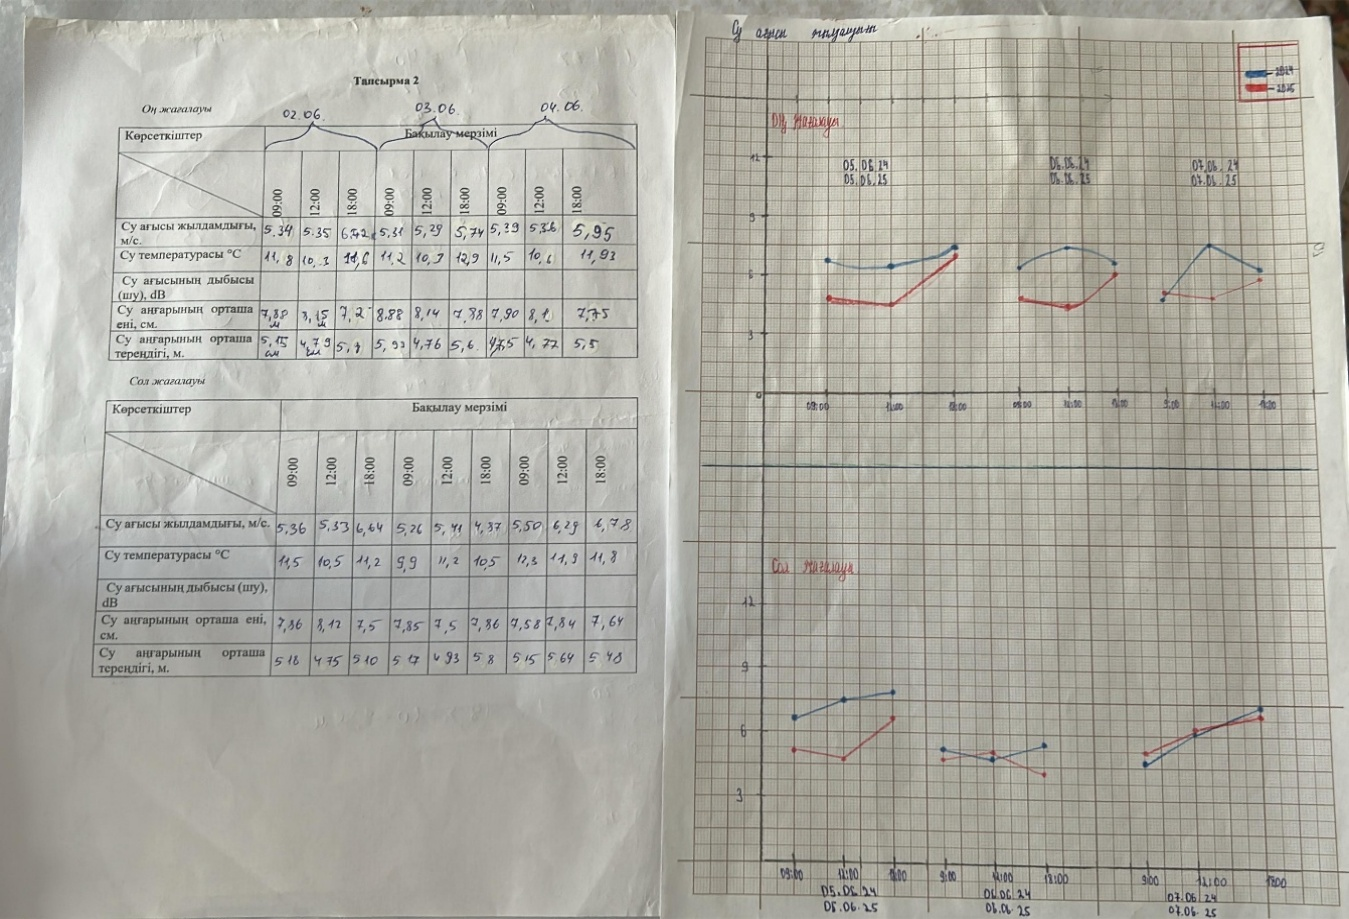 Тапсырма 2
Оң жағалауы
02.06. 03.06. 04.06.
Көрсеткіштер Бақылау мерзімі
09:00 12:00 18:00 09:00 12:00 18:00 09:00 12:00 18:00
Су ағысы жылдамдығы, м/с. 5.34 5.35 5,31 5,29 5,74 5,39 5,95
Су температурасы °С 11,8 10,3 11,6 11,2 10,7 12,9 11,5 10,6 11,93
Су ағысының дыбысы (шу), dB
Су аңғарының орташа ені, см. 7,88 м 8,15 м 7,2 8,88 8,14 7,88 7,90 8,1 7,75
Су аңғарының орташа тереңдігі, м. 5,15 см 4,79 см 4,76 5,6 4,77 5,5
Сол жағалауы
Көрсеткіштер Бақылау мерзімі
09:00 12:00 18:00 09:00 12:00 18:00 09:00 12:00 18:00
Су ағысы жылдамдығы, м/с. 5,36 5,33 6,64 5,26 5,41 4,37 5,50 6,29 6,78
Су температурасы °С 11,5 10,5 11,2 9,9 11,2 10,5 12,3 11,9 11,8
Су ағысының дыбысы (шу), dB
Су аңғарының орташа ені, см. 7,86 8,12 7,5 7,85 7,5 7,86 7,58 7,84 7,64
Су аңғарының орташа тереңдігі, м. 518 475 510 517 493 58 515 564 548
Су ағысы
2024
2025
Оң жағалауы
12
05.06.24 06.06.24 07.06.24
05.06.25 06.06.25 07.06.25
9
6
3
0
09:00 12:00 18:00 09:00 12:00 9:00 12:00
Сол жағалауы
12
9
6
3
09:00 12:00 18:00 9:00 12:00 18:00 9:00 12:00 18:00
05.06.24 06.06.24 07.06.24
05.06.25 06.06.25 07.06.25